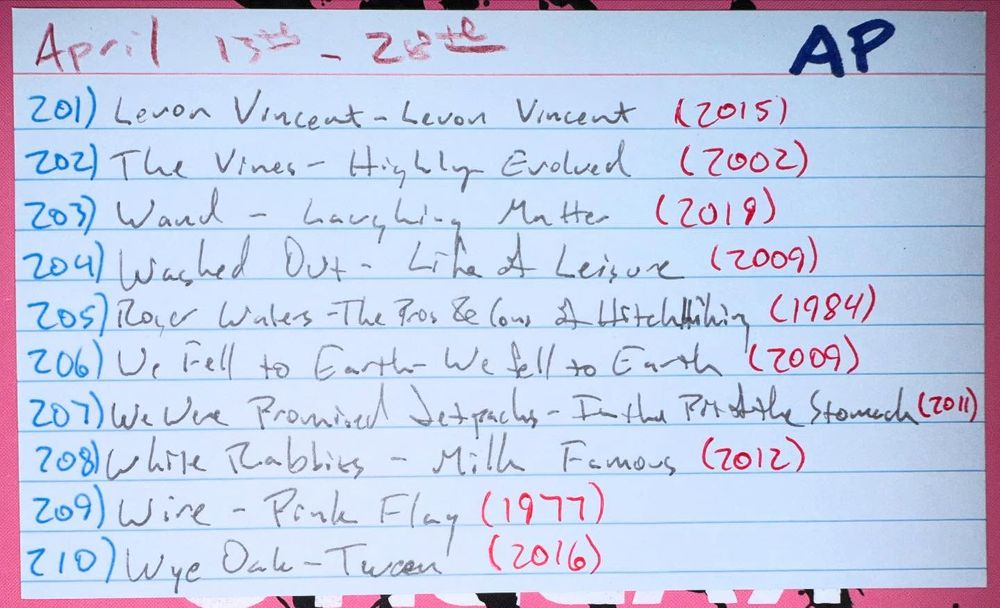 April 13th - 28th
AP
201) Levon Vincent - Levon Vincent (2015)
202) The Vines - Highly Evolved (2002)
203) Wand - Laughing Matter (2019)
204) Washed Out - Life Of Leisure (2009)
205) Roger Waters - The Pros & Cons of Hitchhiking (1984)
206) We Fell to Earth - We fell to Earth (2009)
207) We Were Promised Jetpacks - In the Pit of the Stomach (2011)
208) White Rabbits - Milk Famous (2012)
209) Wire - Pink Flag (1977)
210) Wye Oak - Tween (2016)